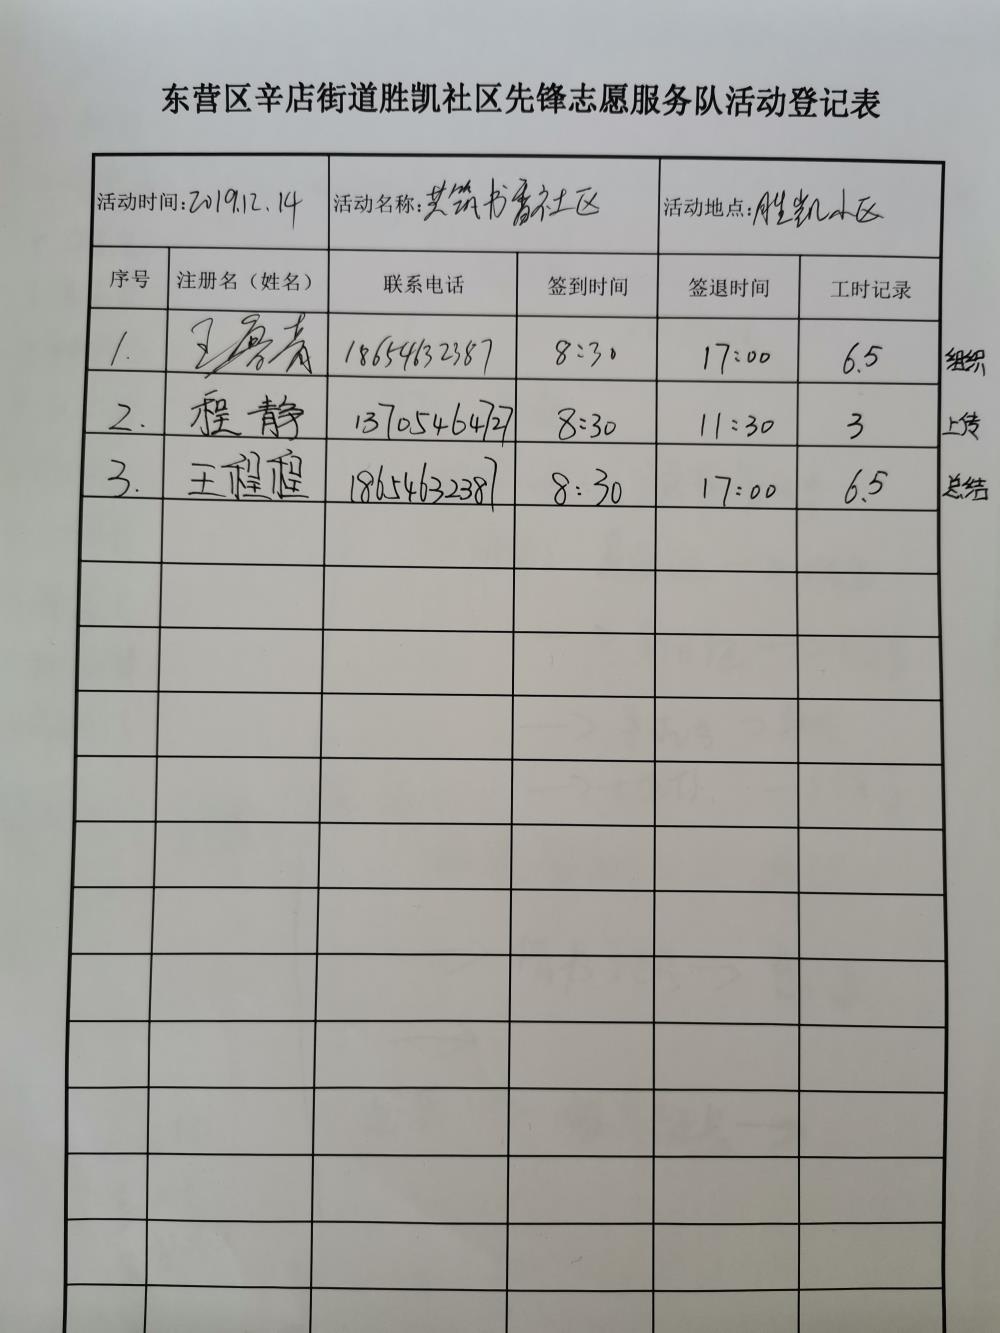 东营区辛店街道胜凯社区先锋志愿服务队活动登记表
活动时间:2019.12.14 活动名称:共筑书香社区 活动地点:胜凯小区
序号 注册名（姓名） 联系电话 签到时间 签退时间 工时记录
1. 王鲁青 18654632387 8:30 17:00 6.5 组织
2. 程静 13705464727 8:30 11:30 3 上传
3. 王程程 18654632387 8:30 17:00 6.5 总结